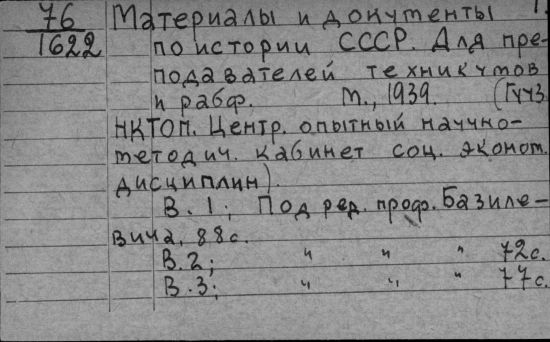 76 Материалы и документы 1.
1622 по истории СССР. Для пре-
подавателей техникумов
и рабф. М., 1939. (ГУУЗ
НКТОП. Центр. опытный научно-
методич. кабинет соц. эконом.
дисциплин).
В. 1; Под ред. проф. Базиле-
вича, 88с.
В. 2; " " " 72с.
В. 3; " " " 77с.